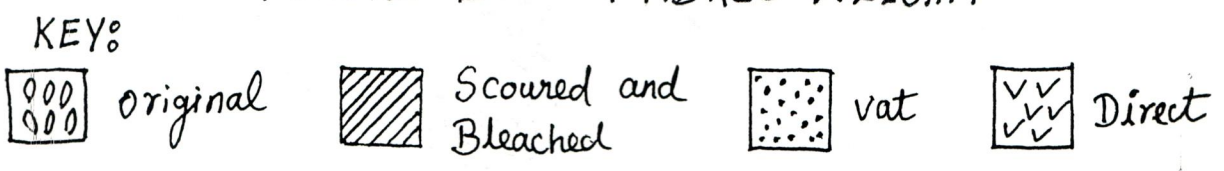 KEY:
original
Scoured and
Bleached
vat
Direct